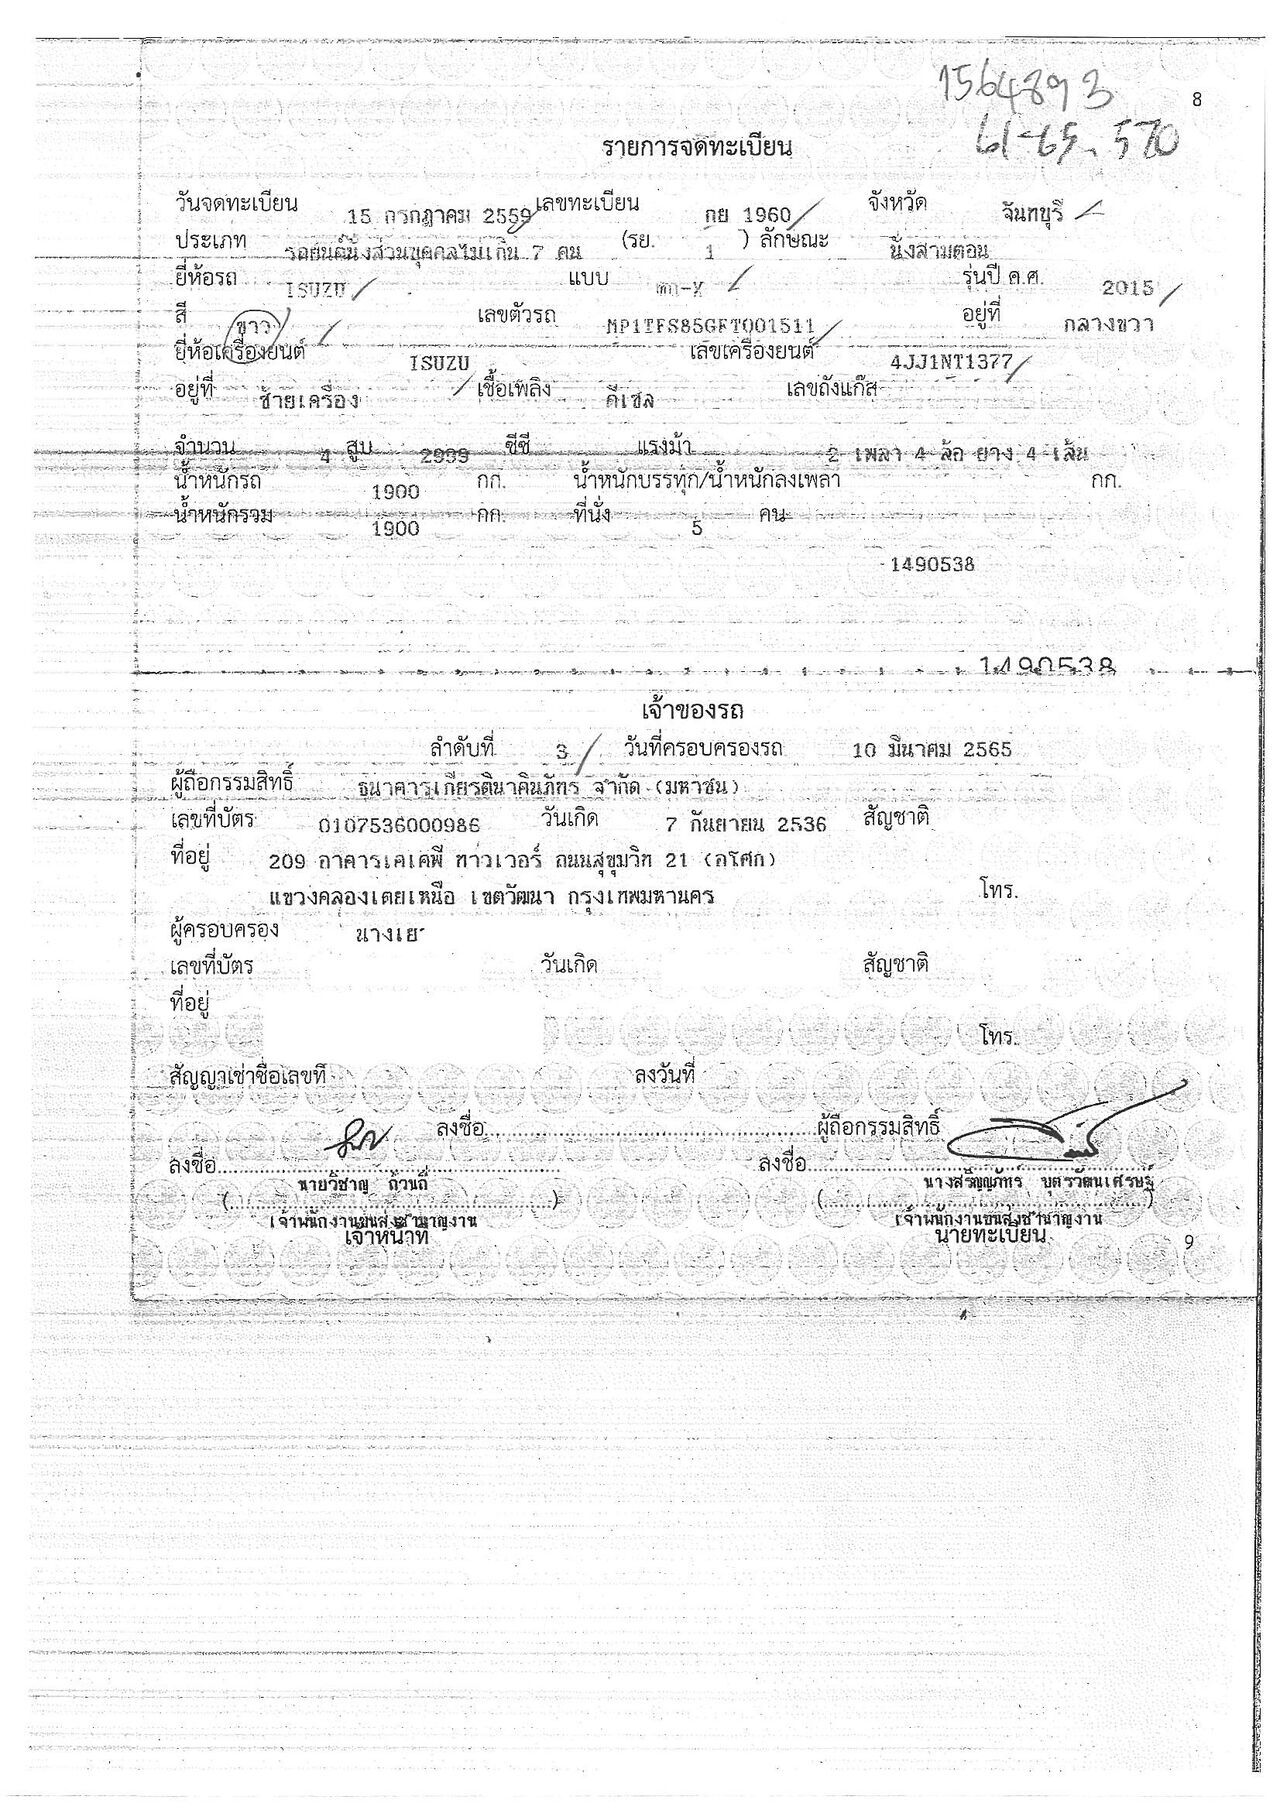 1564893
8
61-65.570
รายการจดทะเบียน
วันจดทะเบียน 15 กรกฎาคม 2559 เลขทะเบียน กย 1960 จังหวัด จันทบุรี
ประเภท รถยนต์นั่งส่วนบุคคลไม่เกิน 7 คน (รย. 1 ) ลักษณะ นั่งสามตอน
ยี่ห้อรถ ISUZU แบบ รุ่นปี ค.ศ. 2015
สี ขาว เลขตัวรถ MP1TFS85GFT001511 อยู่ที่ กลางขวา
ยี่ห้อเครื่องยนต์ ISUZU เลขเครื่องยนต์ 4JJ1NT1377
อยู่ที่ ซ้ายเครื่อง เชื้อเพลิง ดีเซล เลขถังแก๊ส
จำนวน 4 สูบ 2999 ซีซี แรงม้า 2 เพลา 4 ล้อ ยาง 4 เส้น
น้ำหนักรถ 1900 กก. น้ำหนักบรรทุก/น้ำหนักลงเพลา กก.
น้ำหนักรวม 1900 กก. ที่นั่ง 5 คน
1490538
1490538
เจ้าของรถ
ลำดับที่ 3 วันที่ครอบครองรถ 10 มีนาคม 2565
ผู้ถือกรรมสิทธิ์ ธนาคารเกียรตินาคินภัทร จำกัด (มหาชน)
เลขที่บัตร 0107536000986 วันเกิด 7 กันยายน 2536 สัญชาติ
ที่อยู่ 209 อาคารเคเคพี ทาวเวอร์ ถนนสุขุมวิท 21 (อโศก)
แขวงคลองเตยเหนือ เขตวัฒนา กรุงเทพมหานคร โทร.
ผู้ครอบครอง นางเย
เลขที่บัตร วันเกิด สัญชาติ
ที่อยู่
โทร.
สัญญาเช่าซื้อเลขที่ ลงวันที่
ลงชื่อ ผู้ถือกรรมสิทธิ์
ลงชื่อ ลงชื่อ
นายวิชาญ ถ้วนถี่ บุตรวัฒนเศรษฐ์
เจ้าพนักงานขนส่งชำนาญงาน เจ้าพนักงานขนส่งชำนาญงาน
เจ้าหน้าที่ นายทะเบียน
9